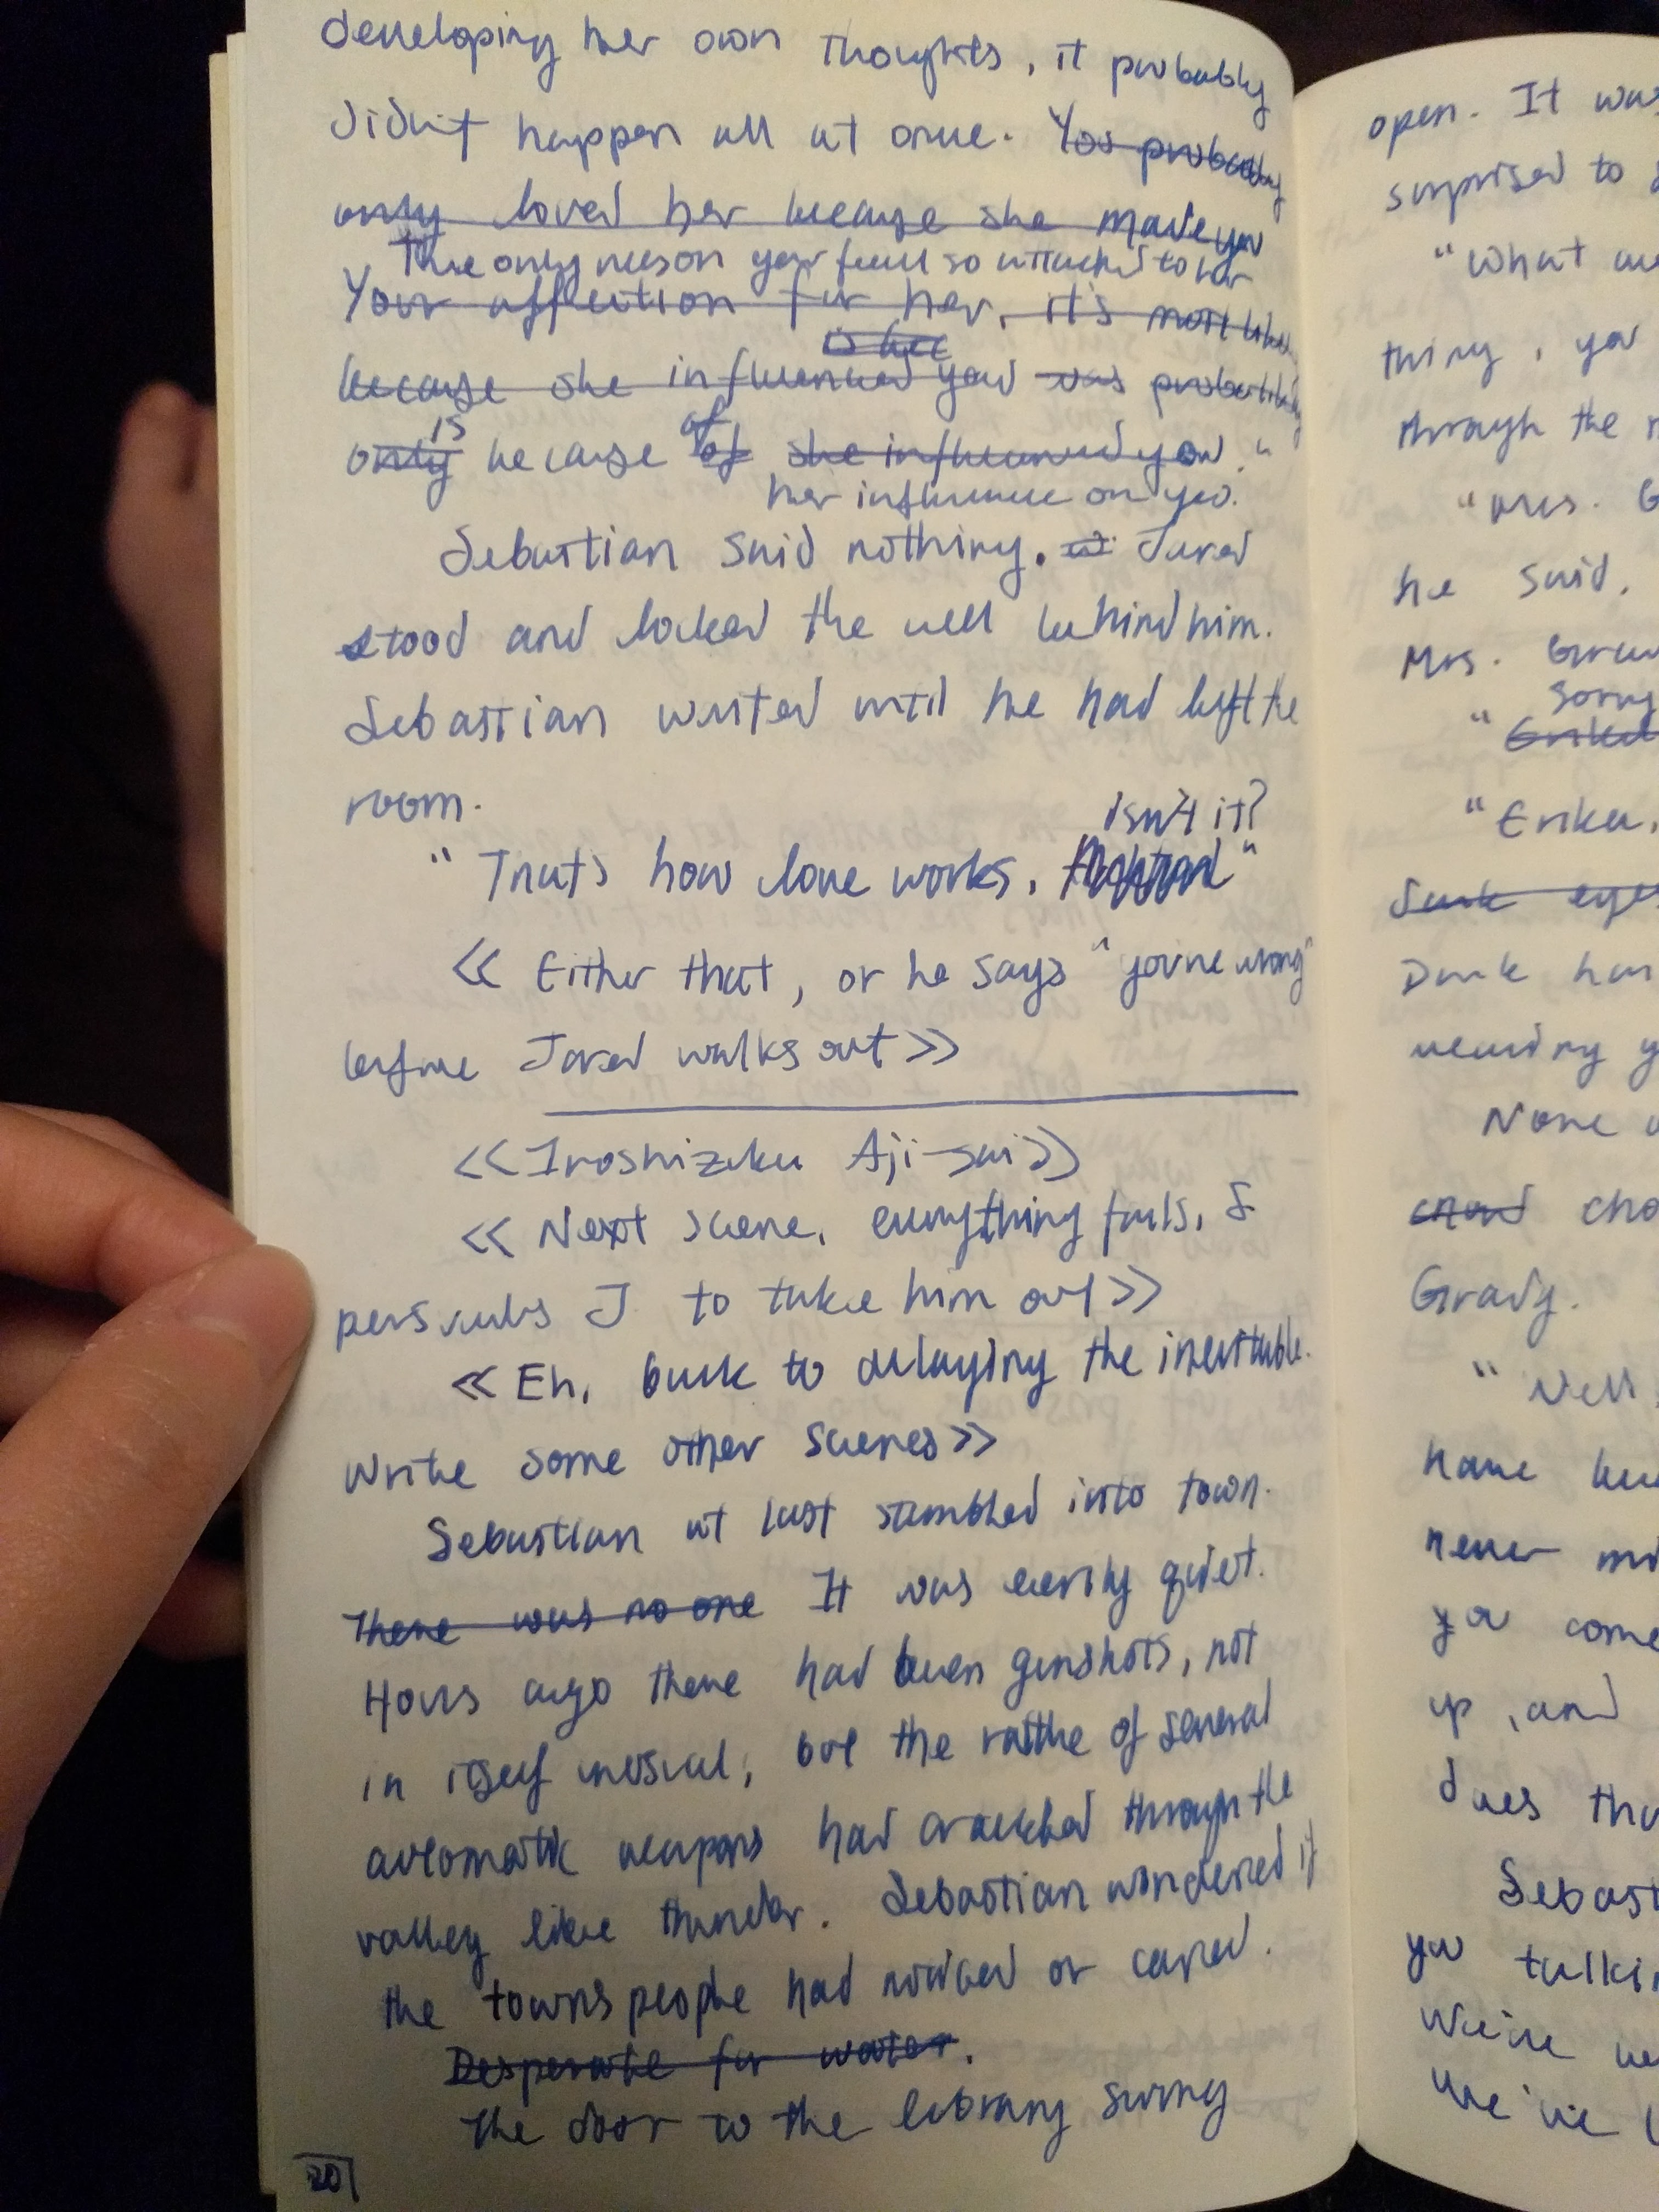 developing her own thoughts, it probably
didn't happen all at once. You probably
only loved her because she made you
The only reason you feel so attached to her
Your affection for her, it's not like
is bec
because she influenced you was probably
is of
only because of she influenced you."
her influence on you.
Sebastian said nothing. Jared
stood and locked the cell behind him.
Sebastian waited until he had left the
room.
isn't it?
"That's how love works, "
<< Either that, or he says "you're wrong"
before Jared walks out >>
<< Iroshizuku Aji-sai >>
<< Next scene, everything fails, S
persuades J to take him out >>
<< Eh, back to delaying the inevitable.
Write some other scenes >>
Sebastian at last stumbled into town.
There was no one It was eerily quiet.
Hours ago there had been gunshots, not
in itself unusual, but the rattle of several
automatic weapons had crackled through the
valley like thunder. Sebastian wondered if
the townspeople had noticed or cared.
Desperate for water.
The door to the library swung
201
open. It was
surprised to
"What are
thing, you
through the
"Mrs. G
he said.
Mrs. Grad
Sorry
"
"Erika,
Dark eyes
Dark hair
wearing
None
crowd
Grady.
"Well,
have
never
you come
up, and
does
Sebast
you talki
We're
We've